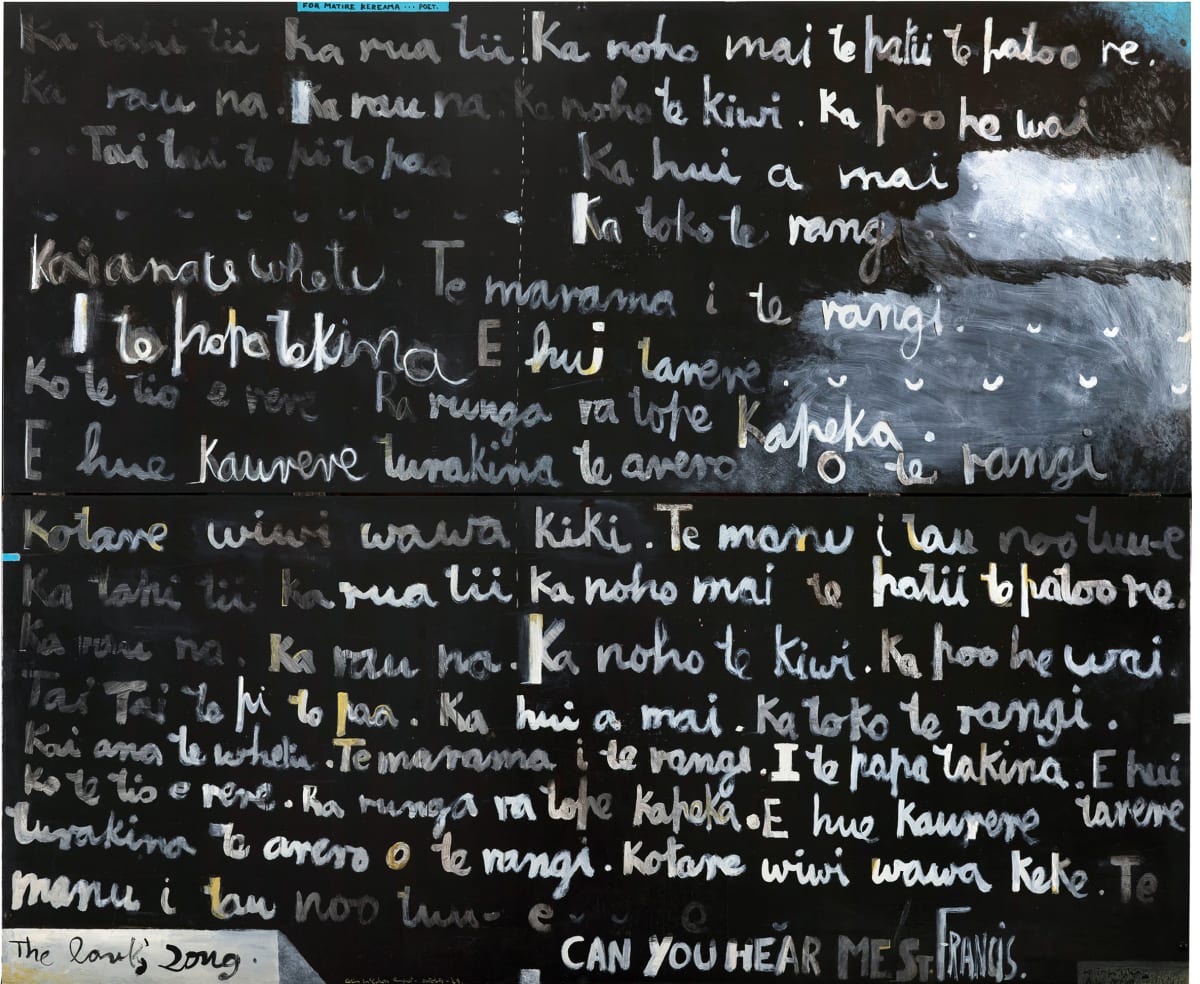 FOR MATIRE KEREAMA ... POET.
Ka tahi tii Ka rua tii. Ka noho mai te patii te patoo re.
Ka rau na. Ka rau na. Ka noho te kiwi. Ka poo he wai
Tai tai to pi to paa Ka hui a mai
Ka toko te rangi
Kai ana te whetu Te marama i te rangi.
I te papa tekina E hui tarere.
Ko te tio e rere Ra runga ra tope Kapeka.
E hue Kaurere turakina te arero O te rangi
Kotare wiwi wawa kiki. Te manu i tau noo tuu-e
Ka tahi tii Ka rua tii Ka noho mai te patii to patoo re.
Ka rau na. Ka rau na. Ka noho te kiwi. Ka poo he wai.
Tai Tai to pi to paa. Ka hui a mai. Ka toko te rangi.
Kai ana te whetu. Te marama i te rangi. I te papa takina. E hui
Ko te tio e rere. Ra runga ra tope Kapeka. E hue Kaurere tarere
turakina te arero o te rangi. Kotare wiwi wawa Keke. Te
manu i tau noo tuu- e e
The lark's song.
CAN YOU HEAR ME ST. FRANCIS.